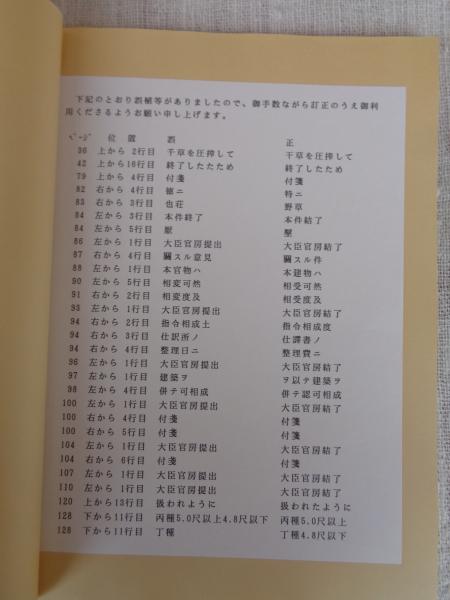 下記のとおり誤植等がありましたので、御手数ながら訂正のうえ御利
用くださるようお願い申し上げます。
ページ 位置 誤 正
36 上から 2行目 干草を圧搾して 干草を圧搾して
42 上から16行目 終了したたため 終了したため
79 上から 4行目 付箋 付箋
82 右から 4行目 徳ニ 特ニ
83 右から 3行目 也荘 野草
84 左から 3行目 本件終了 本件結了
84 左から 5行目
86 左から 1行目 大臣官房提出 大臣官房結了
87 右から 4行目 關スル意見 關スル件
88 左から 1行目 本官物ハ 本建物ハ
90 左から 5行目 相変可然 相受可然
91 右から 2行目 相変度及 相受度及
93 左から 1行目 大臣官房提出 大臣官房結了
94 右から 2行目 指令相成土 指令相成度
94 右から 3行目 仕訳所ノ 仕譯書ノ
94 右から 4行目 整理日ニ 整理費ニ
96 左から 1行目 大臣官房提出 大臣官房結了
97 左から 1行目 建築ヲ ヲ以テ建築ヲ
98 左から 4行目 併テ可相成 併テ認可相成
100 左から 1行目 大臣官房提出 大臣官房結了
100 右から 4行目 付箋 付箋
100 右から 5行目 付箋 付箋
104 左から 1行目 大臣官房提出 大臣官房結了
104 右から 6行目 付箋 付箋
107 左から 1行目 大臣官房提出 大臣官房結了
110 左から 1行目 大臣官房提出 大臣官房結了
120 上から13行目 扱われように 扱われたように
128 下から11行目 丙種5.0尺以上4.8尺以下 丙種5.0尺以上
128 下から11行目 丁種 丁種4.8尺以下